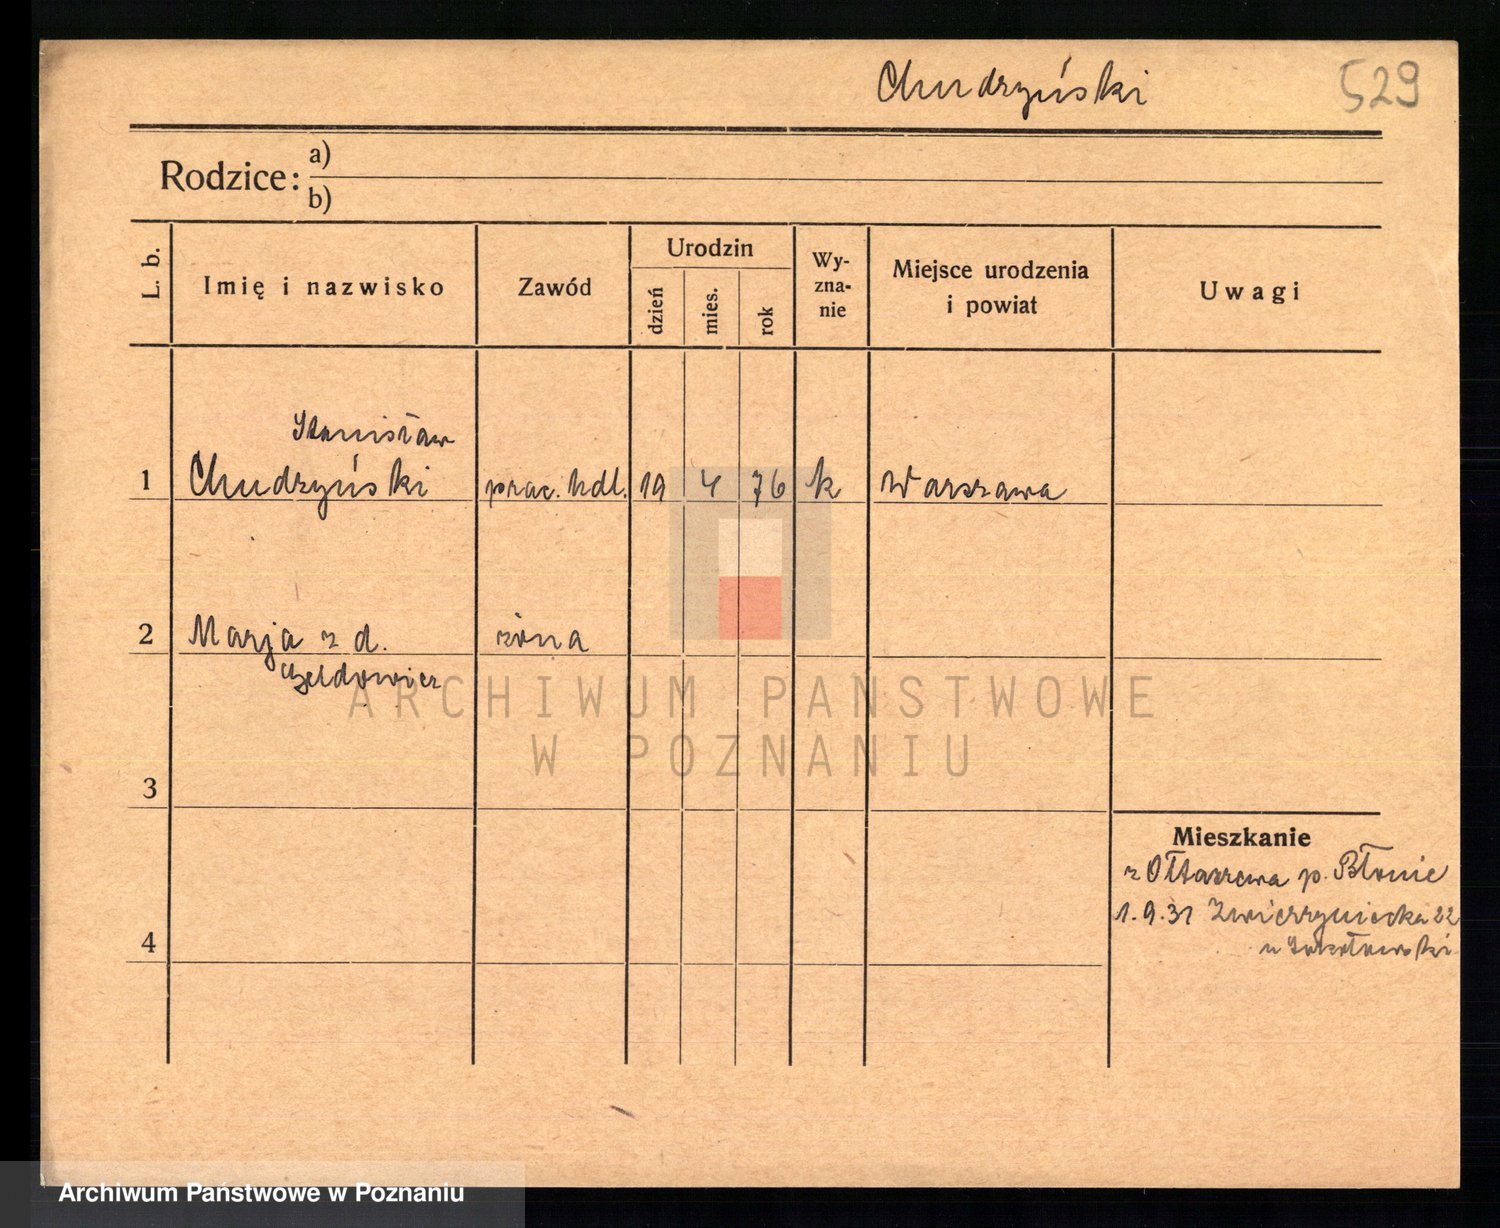 Chudrzyński 529
Rodzice: a)
b)
L. b. Imię i nazwisko Zawód Urodzin dzień mies. rok Wy-zna-nie Miejsce urodzenia i powiat Uwagi
Stanisław
1 Chudrzyński prac. hdl. 19 4 76 k Warszawa
2 Marja z d. żona
3
Mieszkanie
z Ołtarzewa p. Błonie
1.9.31 Zwierzyniecka 22
4
ARCHIWUM PAŃSTWOWE
W POZNANIU
Archiwum Państwowe w Poznaniu